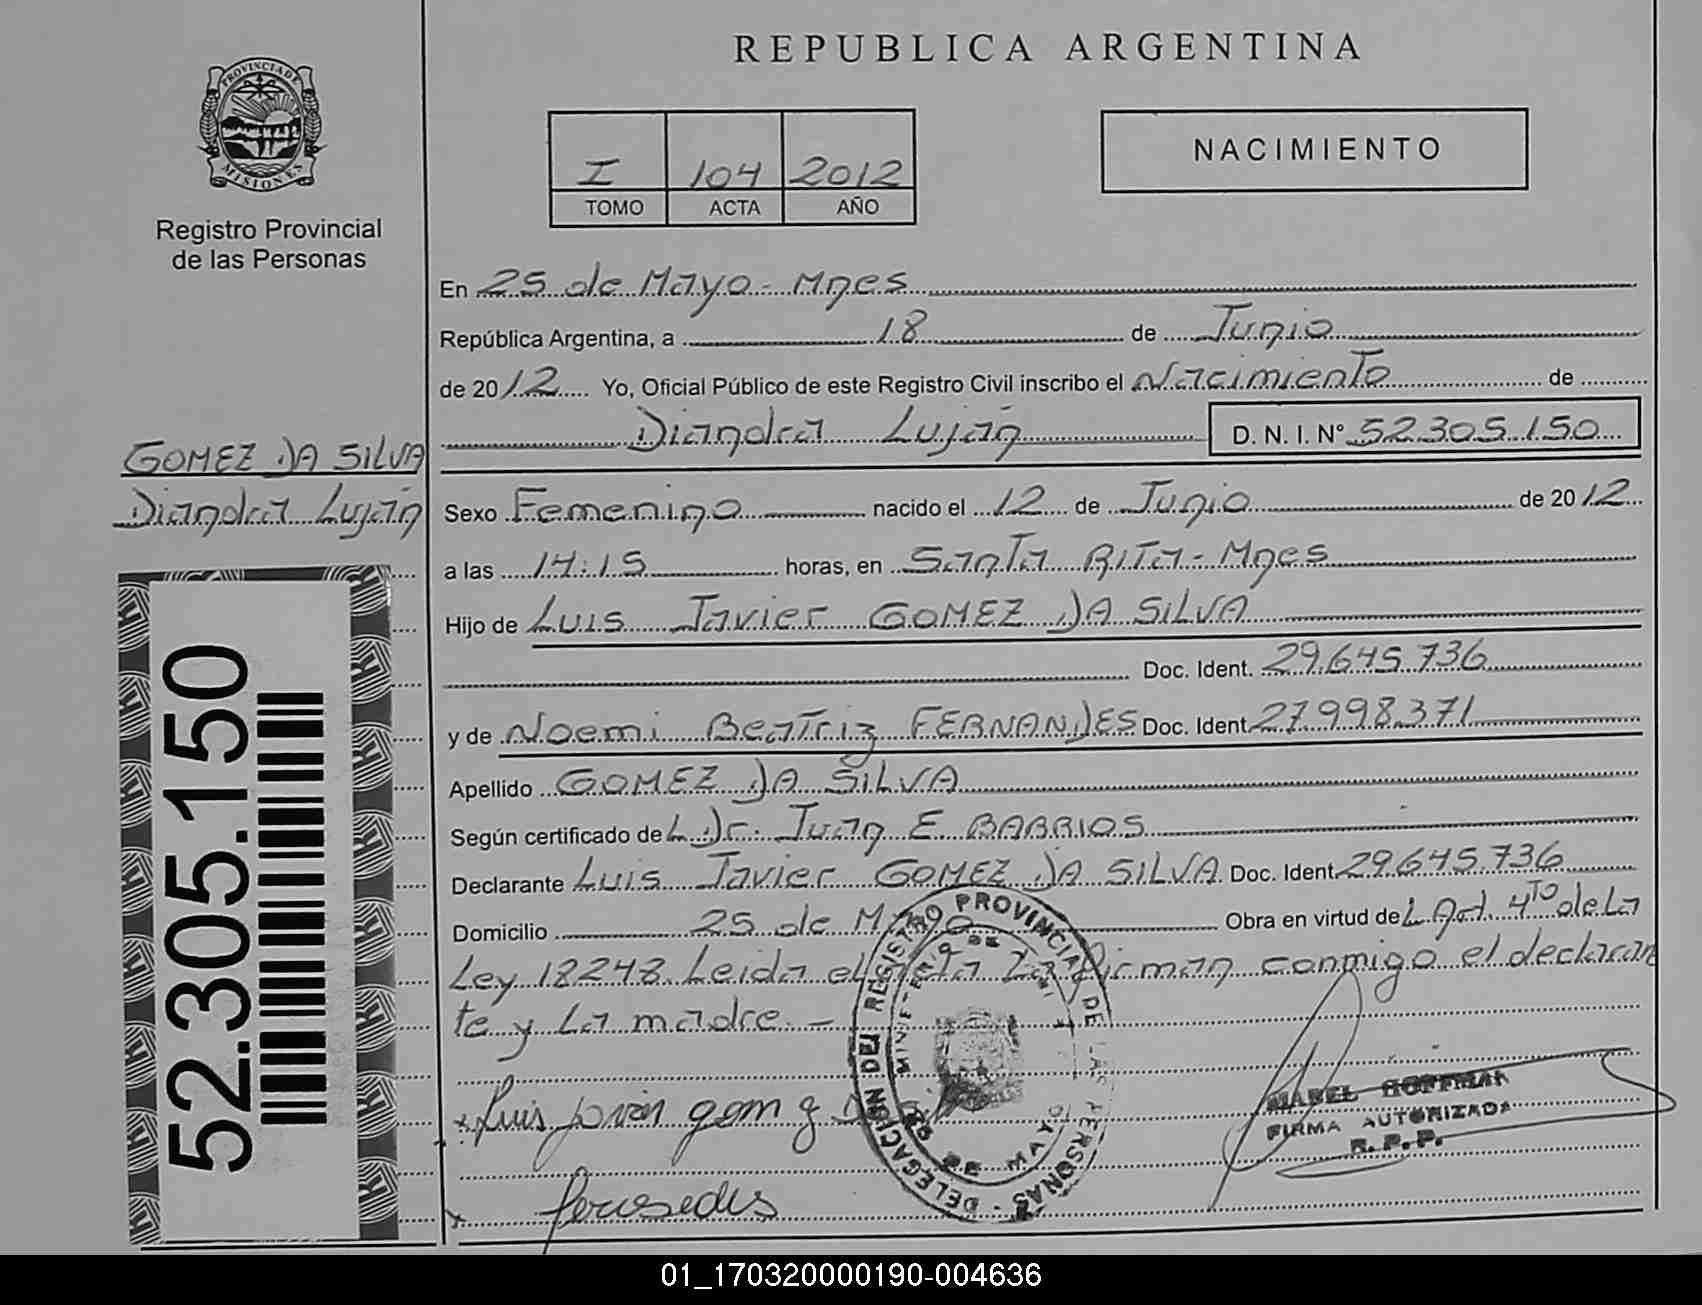 PROVINCIA DE
MISIONES
Registro Provincial
de las Personas
GOMEZ DA SILVA
Diandra Luján
52.305.150
REPUBLICA ARGENTINA
I 104 2012
TOMO ACTA AÑO
NACIMIENTO
En 25 de Mayo - Mnes
República Argentina, a 18 de Junio
de 2012 Yo, Oficial Público de este Registro Civil inscribo el Nacimiento de
Diandra Luján D. N. I. Nº 52.305.150
Sexo Femenino nacido el 12 de Junio de 2012
a las 14:15 horas, en Santa Rita - Mnes
Hijo de Luis Javier GOMEZ DA SILVA
Doc. Ident. 29.645.736
y de Noemi Beatriz FERNANDES Doc. Ident. 27.998.371
Apellido GOMEZ DA SILVA
Según certificado del Dr. Juan E BARRIOS
Declarante Luis Javier GOMEZ DA SILVA Doc. Ident. 29.645.736
Domicilio 25 de Mayo Obra en virtud del Art. 4to de la
Ley 18248. Leida el acta la firman conmigo el declaran
te y la madre. -
DELEGACION DEL REGISTRO PROVINCIAL DE LAS PERSONAS -
25 DE MAYO
MABEL HOFFMAN
FIRMA AUTORIZADA
R. P. P.
01_170320000190-004636